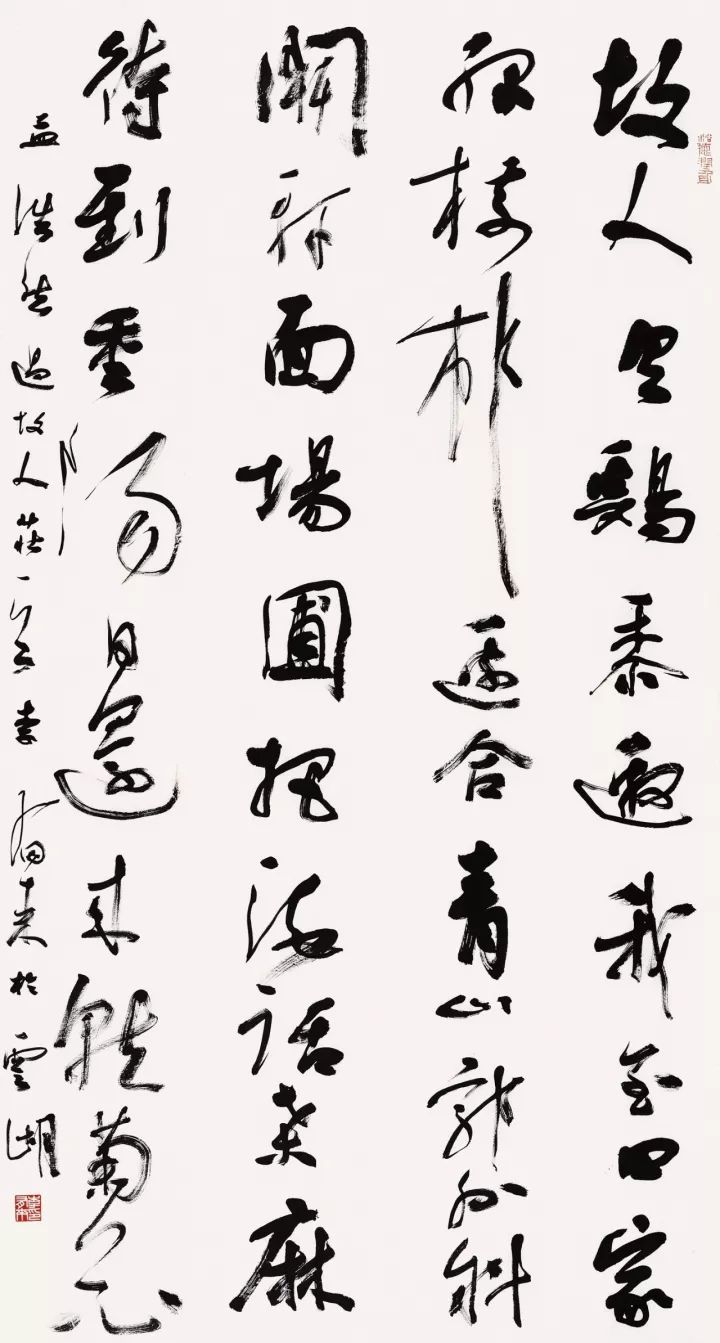 故人具鷄黍邀我至田家
綠樹村邊合青山郭外斜
開軒面場圃把酒話桑麻
待到重陽日還來就菊花
孟浩然過故人莊一 李有来於雲湖